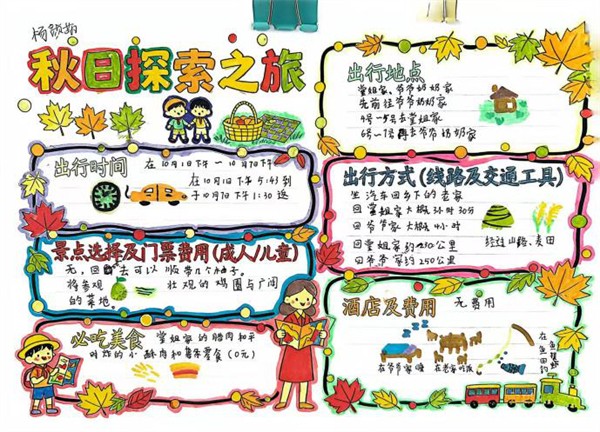 秋日探索之旅
出行时间
在10月1日下午~10月7日下午
在10月1日下午5:43到
于10月7日下午1:30返
景点选择及门票费用(成人/儿童)
无,回去可以顺带几个柚子。
将参观
的菜地
壮观的鸡圈与广阔
必吃美食
堂姐家的腊肉和平
时炸的小酥肉和零食(0元)
出行地点
堂姐家、爷爷奶奶家
先前往爷爷奶奶家
4号-5号去堂姐家
6号-7号再去爷爷奶奶家
出行方式(线路及交通工具)
坐汽车回乡下的老家
回堂姐家大概3小时30分
回爷爷家大概4小时
回堂姐家约210公里
回爷爷家约250公里
途经山路、麦田
酒店及费用
无费用
在爷爷家睡
在老家吃饭
在鱼
田钓